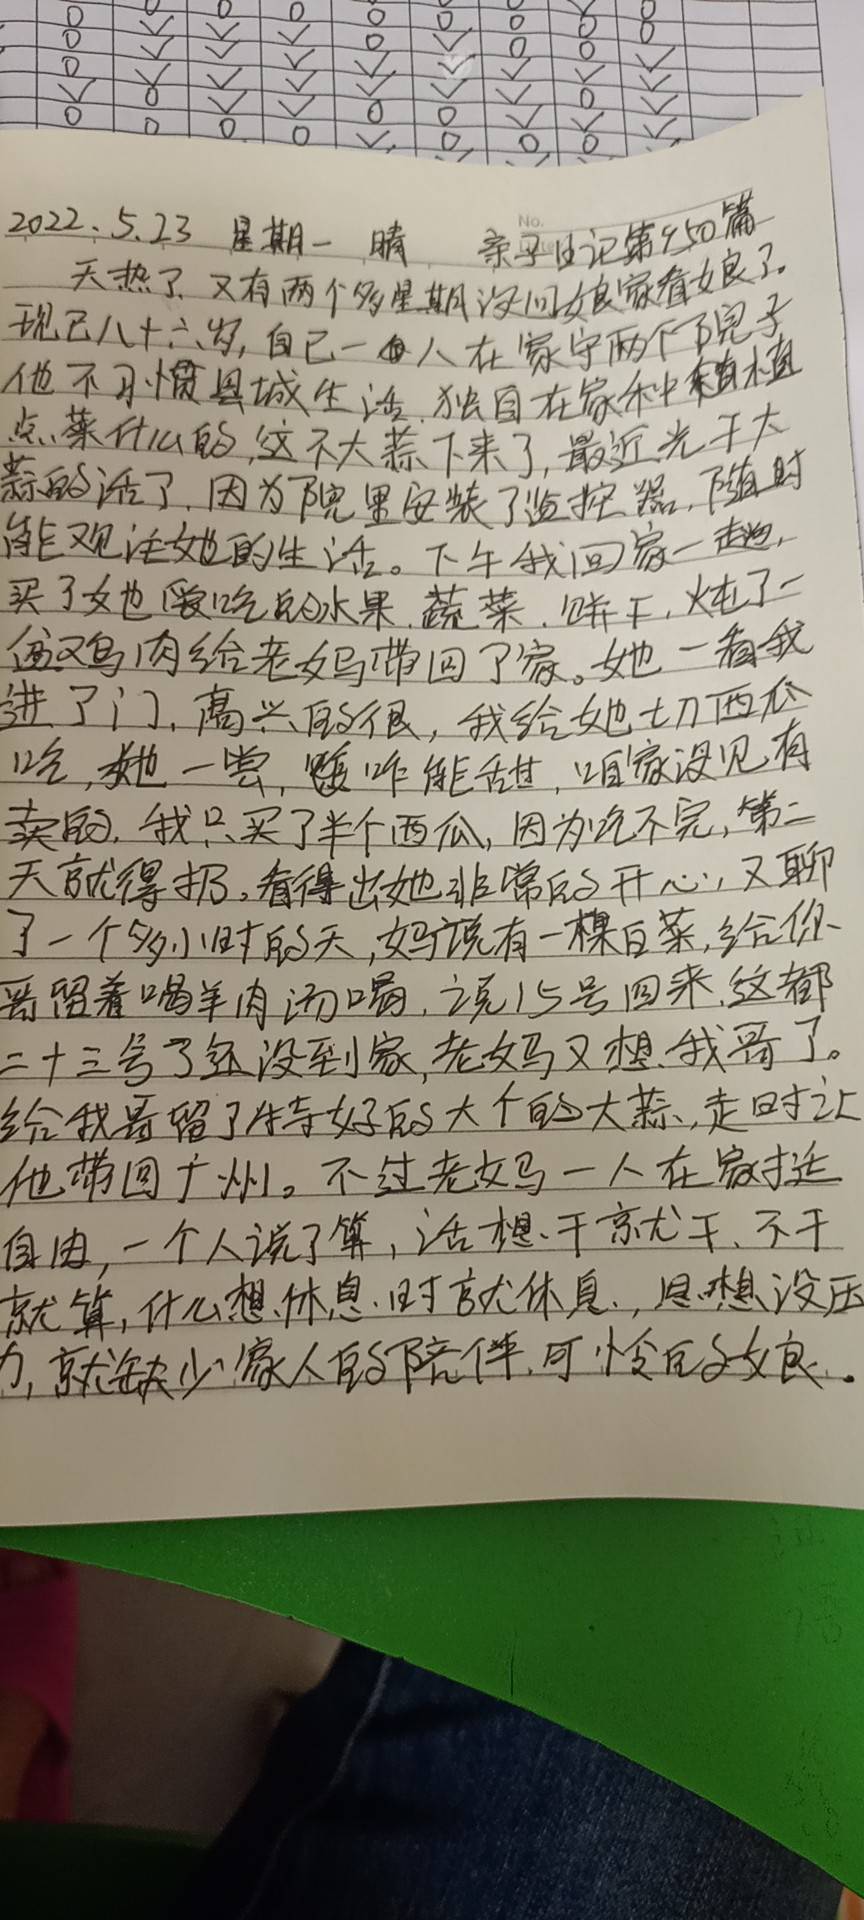 No.
2022.5.23 星期一 晴 亲子日记第950篇
天热了,又有两个多星期没回娘家看娘了。
现已八十六岁,自己一人在家守两个院子
他不习惯县城生活,独自在家种植
点菜什么的,这不大蒜下来了,最近光干大
蒜的活了,因为院里安装了监控器,随时
能观注她的生活。下午我回家一趟,
买了她爱吃的水果,蔬菜,饼干,炖了一
盆鸡肉给老妈带回了家。她一看我
进了门,高兴的很,我给她切西瓜
吃,她一尝,嗳咋能甜,咱家没见有
卖的,我只买了半个西瓜,因为吃不完,第二
天就得扔。看得出她非常的开心,又聊
了一个多小时的天,妈说有一棵白菜,给你
哥留着喝羊肉汤喝,说15号回来,这都
二十三号了还没到家,老妈又想我哥了。
给我哥留了特好的大个的大蒜,走时让
他带回广州。不过老妈一人在家挺
自由,一个人说了算,活想干就干、不干
就算,什么想休息时就休息,思想没压
力,就缺少家人的陪伴,可怜的娘。